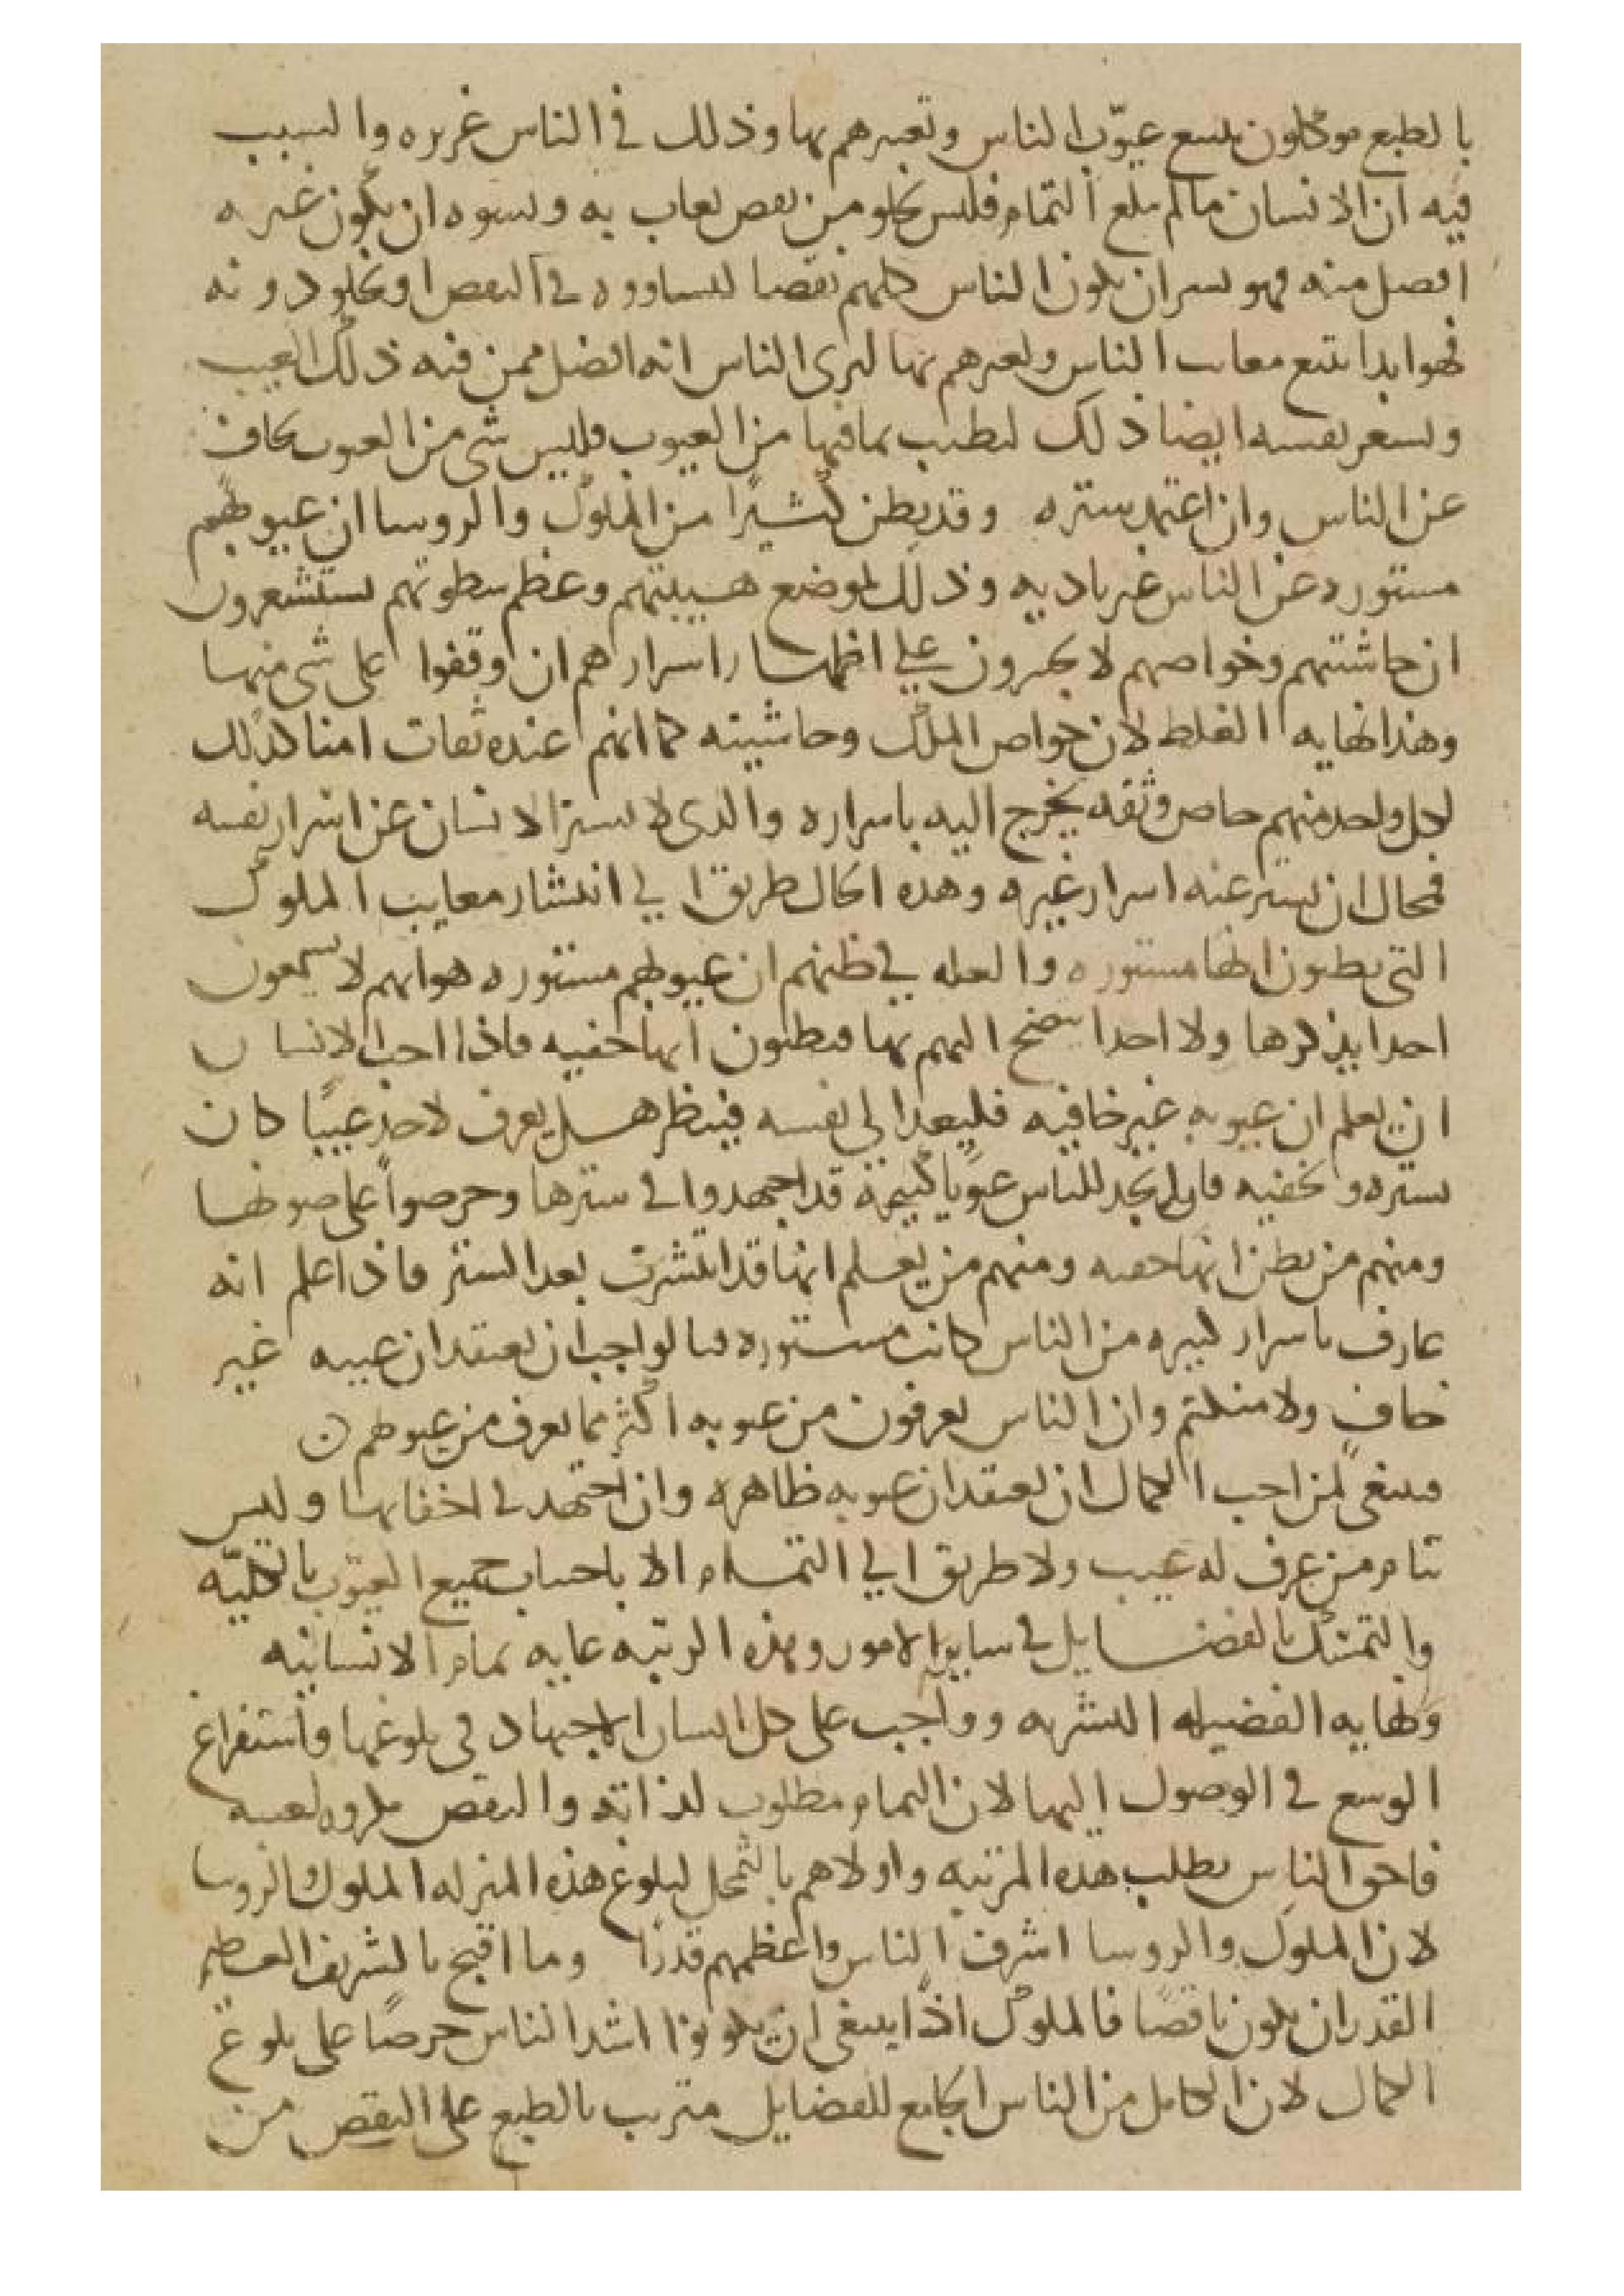 بالطبع موكلون بتتبع عيوب الناس وتعييرهم بها وذلك في الناس غريزه والسبب
فيه ان الانسان ما لم يبلغ التمام فليس يخلو من نقص يعاب به ويسوه ان يكون غيره
افضل منه فهو يسر ان يكون الناس كلهم نقصا ليساووه في النقص او يكونوا دونه
فهو ابدا يتتبع معايب الناس ويعيرهم بها ليرى الناس انه افضل ممن فيه ذلك العيب
ويشعر نفسه ايضا ذلك لتطيب بما فيها من العيوب فليس شي من العيوب بخاف
عن الناس وان اعتمد ستره وقد يظن كثيرًا من الملوك والروسا ان عيوبهم
مستوره عن الناس غير باديه وذلك لموضع هيبتهم وعظم سطوتهم يستشعرون
ان حاشيتهم وخواصهم لا يجسرون على اظهار اسرارهم ان وقفوا على شي منها
وهذا نهايه الغلط لان خواص الملك وحاشيته كما انهم عنده ثقات امنا كذلك
لكل واحد منهم خاص وثقه يخرج اليه باسراره والذي لا يستر الانسان عن اسرار نفسه
فمحال ان يستر عنه اسرار غيره وهذه الحال طريق الي انتشار معايب الملوك
التي يظنون انها مستوره والعله في ظنهم ان عيوبهم مستوره هو انهم لا يسمعون
احدا يذكرها ولا احدا ينصح اليهم بها فيظنون انها خفيه فاذا احب الانسان
ان يعلم ان عيوبه غير خافيه فليعد الى نفسه فينظر هل يعرف لاحد عيبًا كان
يستره ويخفيه فانه يجد للناس عيوبًا كثيرة قد اجتهدوا في سترها وحرصوا على صونها
ومنهم من يظن انها خفيه ومنهم من يعلم انها قد انتشرت بعد الستر فاذا علم انه
عارف باسرار كثيره من الناس كانت مستوره فبالواجب ان يعتقد ان عيبه غير
خاف ولا منكتم وان الناس يعرفون من عيوبه اكثر مما يعرف من عيوبهم
فينبغي لمن احب الكمال ان يعتقد ان عيوبه ظاهره وان اجتهد في اخفايها وليس
بتام من عرف له عيب ولا طريق الي التمام الا باجتناب جميع العيوب بالكليّه
والتمسّك بالفضايل في ساير الامور وهذه الرتبه غايه تمام الانسانيه
ونهايه الفضيله البشريه وواجب على كل انسان الاجتهاد في بلوغها واستفراغ
الوسع في الوصول اليها لان التمام مطلوب لذاته والنقص مكروه لعينه
فاحق الناس بطلب هذه المرتبه واولاهم بالتمحل لبلوغ هذه المنزله الملوك والروسا
لان الملوك والروسا اشرف الناس واعظمهم قدرًا وما اقبح بالشريف العظيم
القدر ان يكون ناقصًا فالملوك اذًا ينبغي ان يكونوا اشد الناس حرصًا على بلوغ
الكمال لان الكامل من الناس الجامع للفضايل مترتب بالطبع على النقص من